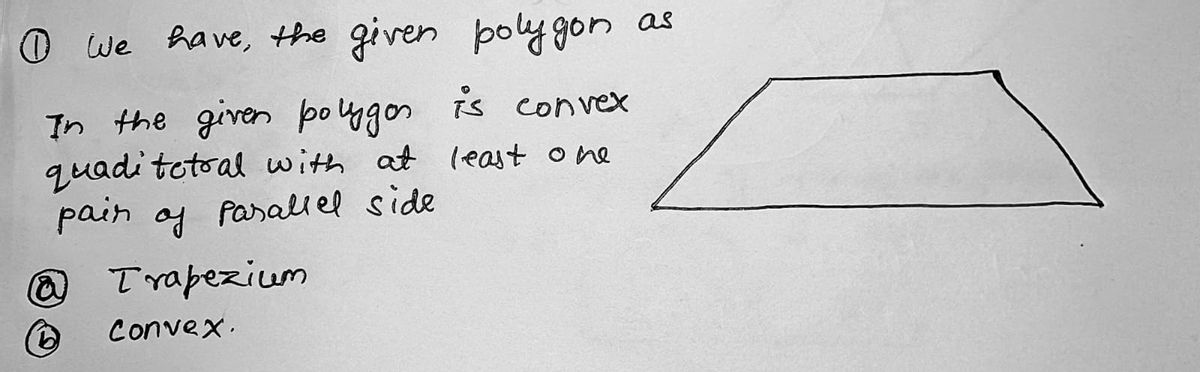 ① We have, the given polygon as
In the given polygon is convex
quaditetoral with at least one
pair of parallel side
ⓐ Trapezium
ⓑ convex.